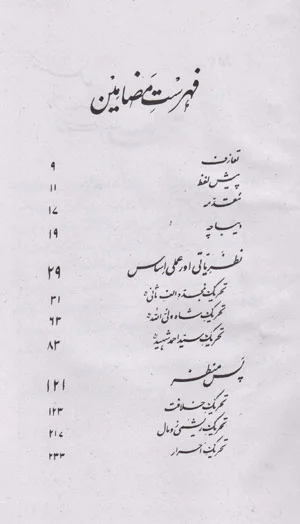 فہرستِ مَضامین
تعارف ۹
پیش لفظ ۱۱
مقدمہ ۱۷
دیباچہ ۱۹
نظریاتی اور عملی اساس ۲۹
تحریک مجدد الف ثانیؒ ۳۱
تحریک شاہ ولی اللہؒ ۶۳
تحریک سید احمد شہیدؒ ۸۳
پس منظر ۱۲۱
تحریک خلافت ۱۲۳
تحریک ریشمی رومال ۲۱۷
تحریک احرار ۲۳۳